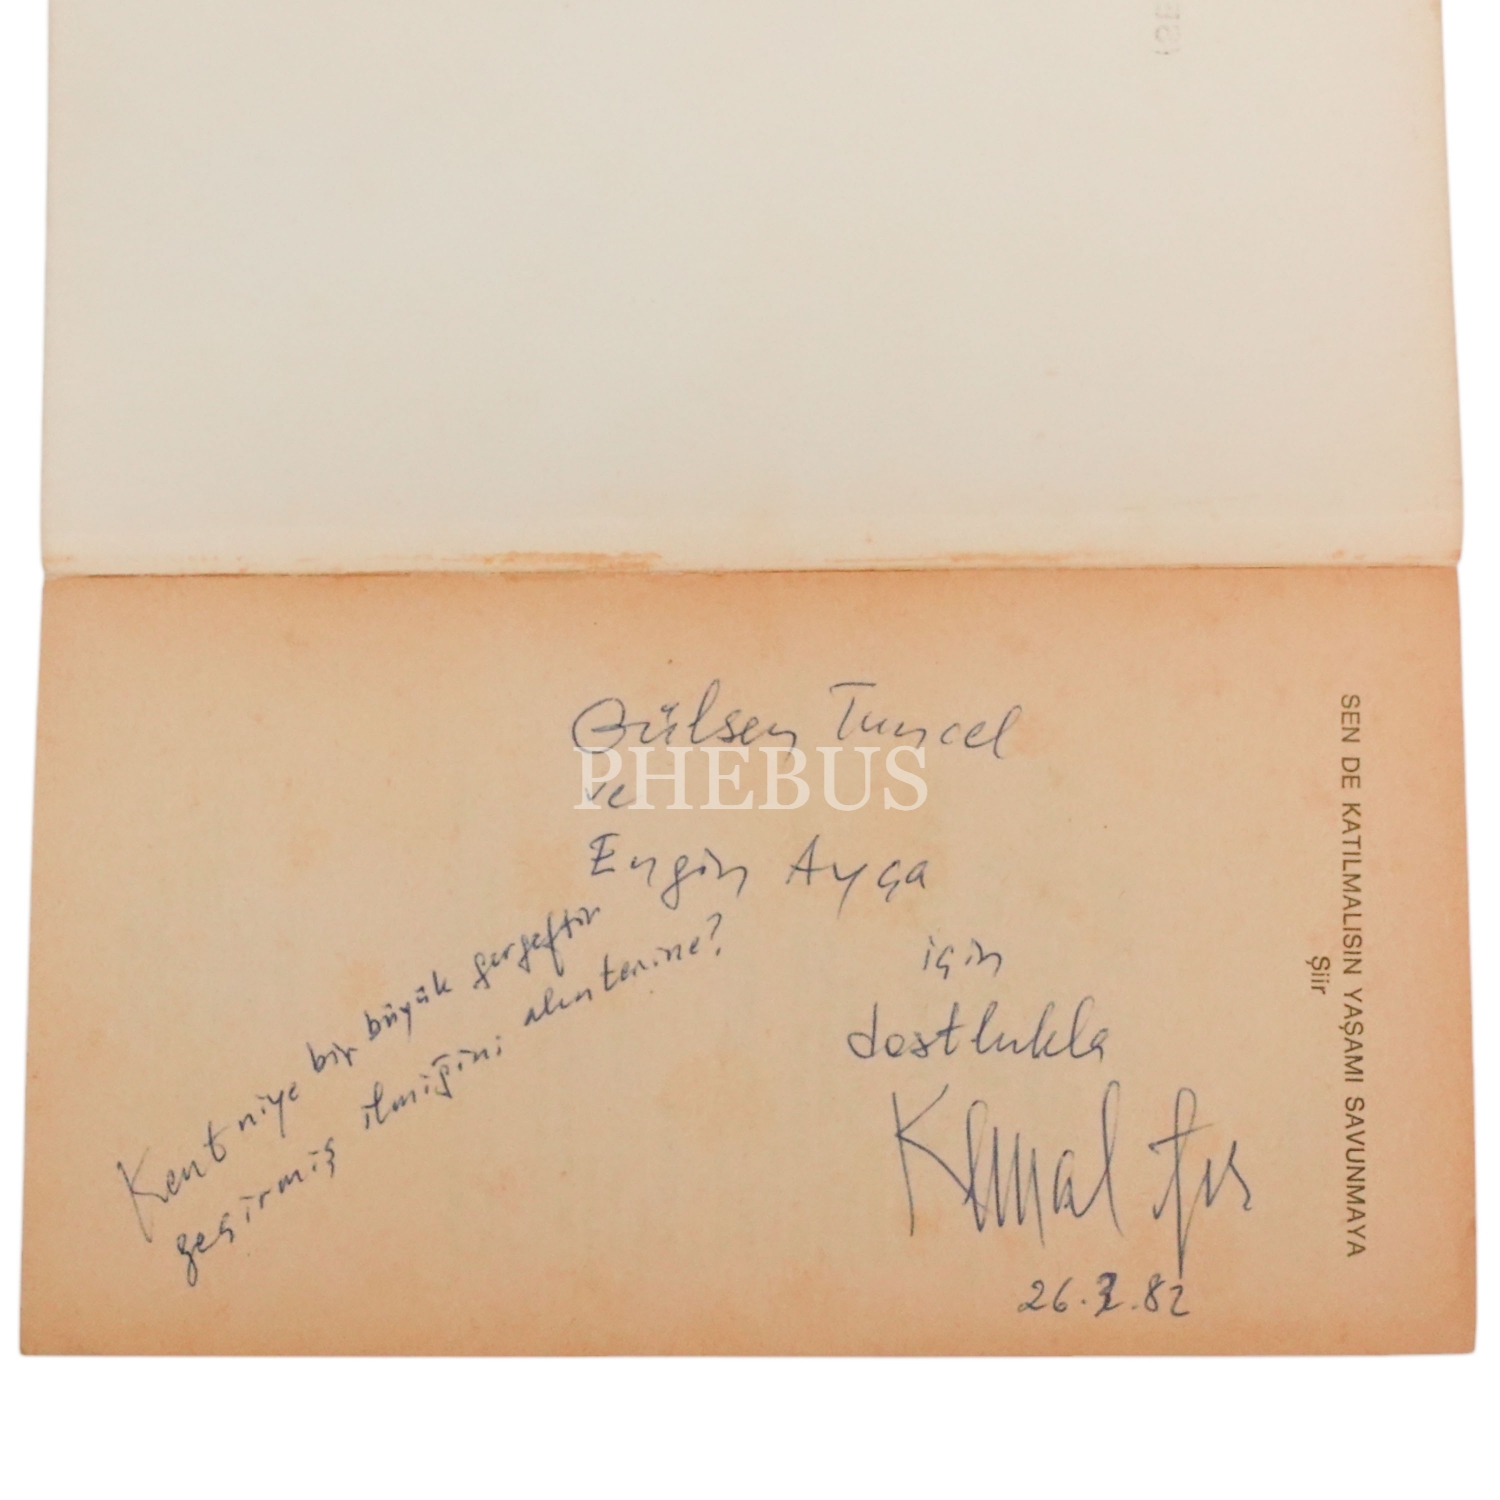 SEN DE KATILMALISIN YAŞAMI SAVUNMAYA
Şiir
Gülsen Tuncel
ve
Engin Ayça
için
dostlukla
Kemal
26.2.82
Kent niye bir büyük gergeftir
geçirmiş ilmiğini alın terine?
PHEBUS